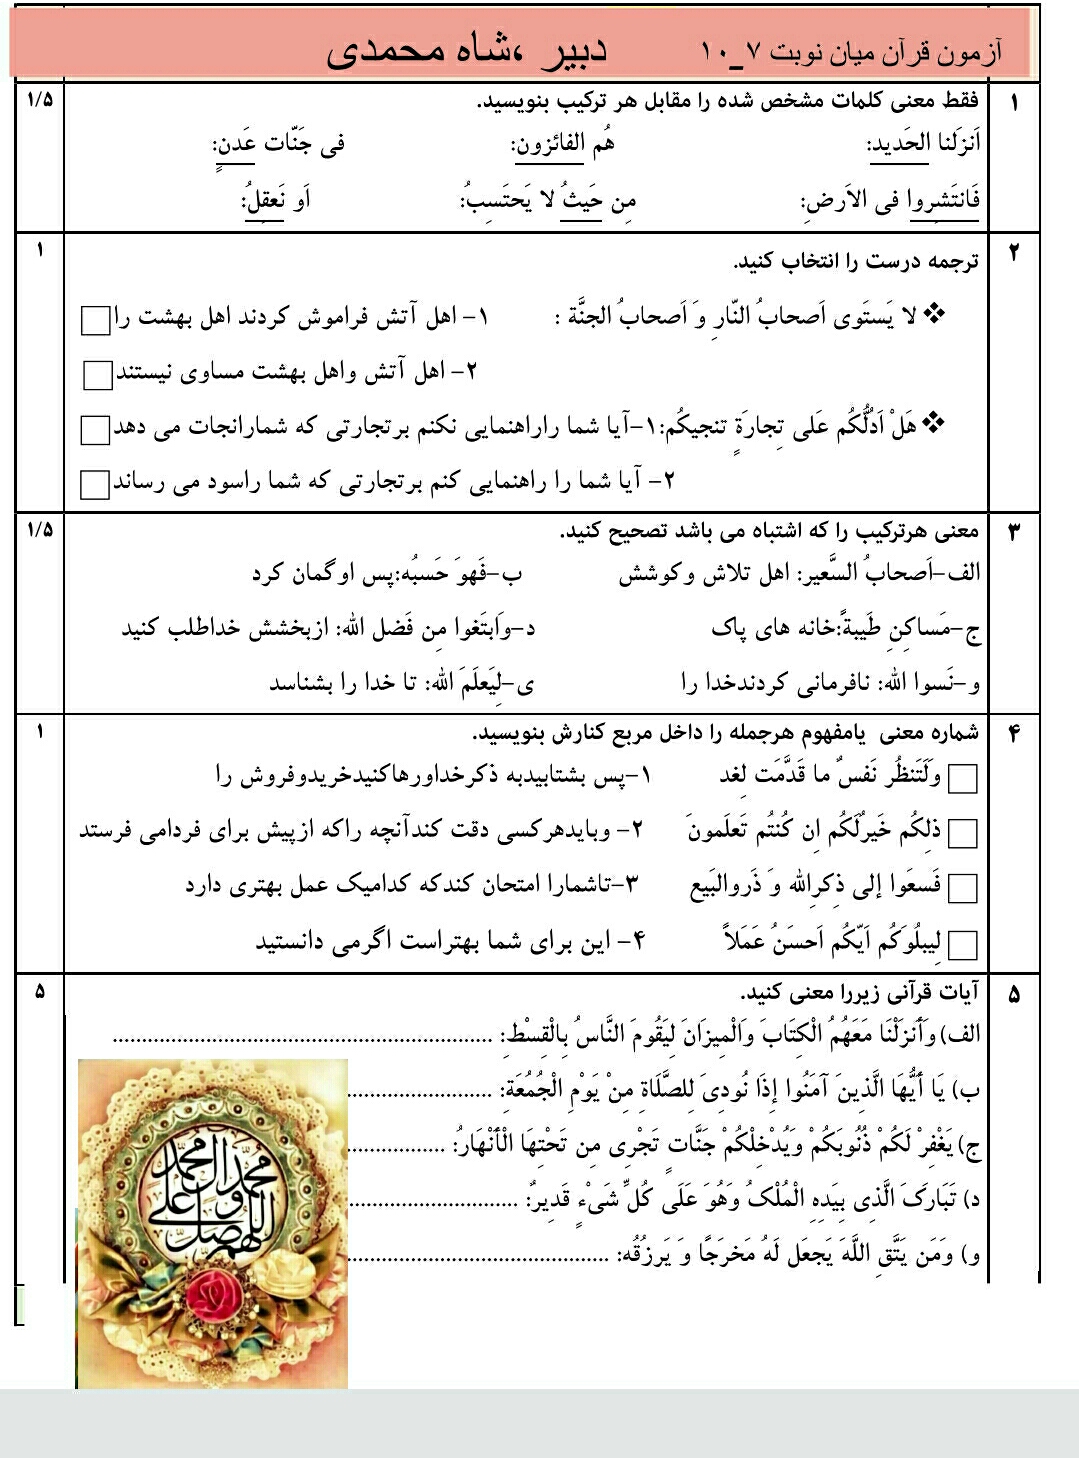 آزمون قرآن میان نوبت ۷_۱۰ دبیر ،شاه محمدی
۱ فقط معنی کلمات مشخص شده را مقابل هر ترکیب بنویسید. ۱/۵
اَنزَلنا الحَدید: هُم الفائزون: فی جَنّات عَدنٍ:
فَانتَشِروا فی الاَرضِ: مِن حَیثُ لا یَحتَسِبُ: اَو نَعقِلُ:
۲ ترجمه درست را انتخاب کنید. ۱
❖ لا یَستَوی اَصحابُ النّارِ وَ اَصحابُ الجنَّة : ۱- اهل آتش فراموش کردند اهل بهشت را
۲- اهل آتش واهل بهشت مساوی نیستند
❖ هَلْ اَدُلُّکُم عَلی تِجارَةٍ تنجیکُم:۱-آیا شما راراهنمایی نکنم برتجارتی که شمارانجات می دهد
۲- آیا شما را راهنمایی کنم برتجارتی که شما راسود می رساند
۳ معنی هرترکیب را که اشتباه می باشد تصحیح کنید. ۱/۵
الف-اَصحابُ السَّعیر: اهل تلاش وکوشش ب-فَهوَ حَسبُه:پس اوگمان کرد
ج-مَساکِنِ طَیبةً:خانه های پاک د-وَابتَغوا مِن فَضل الله: ازبخشش خداطلب کنید
و-نَسوا الله: نافرمانی کردندخدا را ی-لِیَعلَمَ الله: تا خدا را بشناسد
۴ شماره معنی یامفهوم هرجمله را داخل مربع کنارش بنویسید. ۱
وَلَتَنظُر نَفسٌ ما قَدَّمَت لِغد ۱-پس بشتابیدبه ذکرخداورهاکنیدخریدوفروش را
ذلِکُم خَیرٌلَکُم اِن کُنتُم تَعلَمونَ ۲- وبایدهرکسی دقت کندآنچه راکه ازپیش برای فردامی فرستد
فَسعَوا إلی ذِکرِالله وَ ذَروالبَیع ۳-تاشمارا امتحان کندکه کدامیک عمل بهتری دارد
لِیبلُوَکُم اَیّکُم اَحسَنُ عَمَلاً ۴- این برای شما بهتراست اگرمی دانستید
۵ آیات قرآنی زیررا معنی کنید. ۵
الف)وَأَنزَلْنَا مَعَهُمُ الْکِتَابَ وَالْمِیزَانَ لِیَقُومَ النَّاسُ بِالْقِسْطِ: ................................................................
ب) یَا أَیُّهَا الَّذِینَ آمَنُوا إِذَا نُودِیَ لِلصَّلَاةِ مِنْ یَوْمِ الْجُمُعَةِ: .........................
ج)یَغْفِرْ لَکُمْ ذُنُوبَکُمْ وَیُدْخِلْکُمْ جَنَّاتٍ تَجْرِی مِن تَحْتِهَا الْأَنْهَارُ: .................
د) تَبَارَکَ الَّذِی بِیَدِهِ الْمُلْکُ وَهُوَ عَلَی کُلِّ شَیْءٍ قَدِیرٌ: .............................
و) وَمَن یَتَّقِ اللَّهَ یَجعَل لَهُ مَخرَجًا وَ یَرزُقُه: ............................................
اللهم صل علی محمد و آل محمد